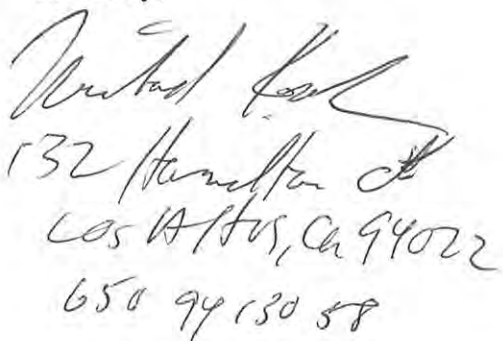 132 Hamilton Ct
Los Altos, Ca 94022
650 9413058